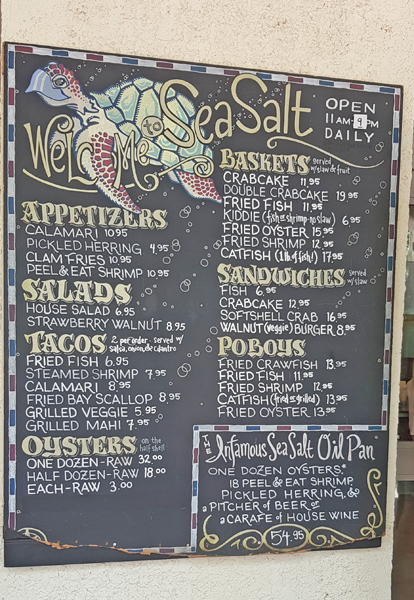 Welcome to Sea Salt
OPEN
11AM-9PM
DAILY
APPETIZERS
CALAMARI 10.95
PICKLED HERRING 4.95
CLAM FRIES 10.95
PEEL & EAT SHRIMP 10.95
SALADS
HOUSE SALAD 6.95
STRAWBERRY WALNUT 8.95
TACOS 2 per order - served w/ salsa, onion, & cilantro
FRIED FISH 6.95
STEAMED SHRIMP 7.95
CALAMARI 8.95
FRIED BAY SCALLOP 8.95
GRILLED VEGGIE 5.95
GRILLED MAHI 7.95
OYSTERS on the half shell
ONE DOZEN-RAW 32.00
HALF DOZEN-RAW 18.00
EACH-RAW 3.00
BASKETS served w/ slaw & fruit
CRABCAKE 11.95
DOUBLE CRABCAKE 19.95
FRIED FISH 11.95
KIDDIE (fish or shrimp-no slaw) 6.95
FRIED OYSTER 15.95
FRIED SHRIMP 12.95
CATFISH (1 lb of fish!) 17.95
SANDWICHES served w/ slaw
FISH 6.95
CRABCAKE 12.95
SOFTSHELL CRAB 16.95
WALNUT (Veggie) BURGER 8.95
PO BOYS
FRIED CRAWFISH 13.95
FRIED FISH 11.95
FRIED SHRIMP 12.95
CATFISH (fried or grilled) 13.95
FRIED OYSTER 13.95
The Infamous Sea Salt Oil Pan
ONE DOZEN OYSTERS*
18 PEEL & EAT SHRIMP
PICKLED HERRING, &
a PITCHER of BEER or
a CARAFE of HOUSE WINE
54.95